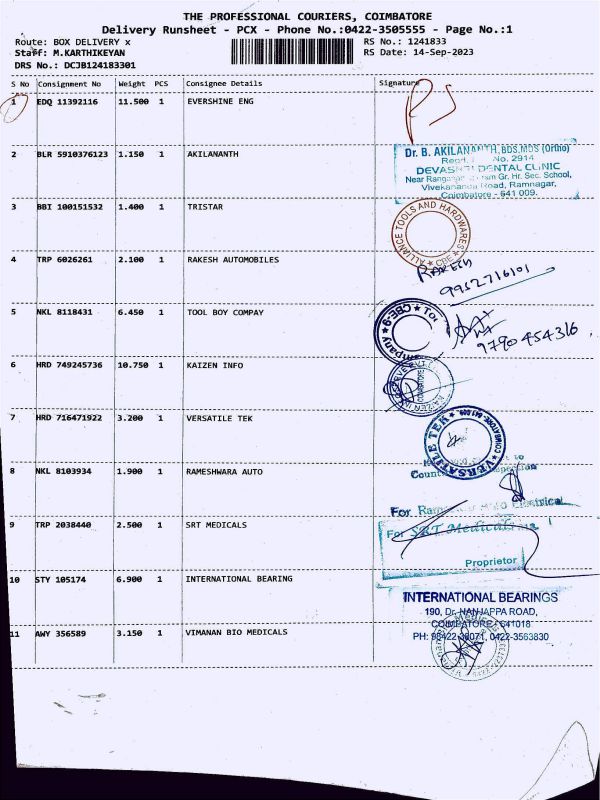 THE PROFESSIONAL COURIERS, COIMBATORE
Delivery Runsheet - PCX - Phone No.:0422-3505555 - Page No.:1
Route: BOX DELIVERY x
RS No.: 1241833
Staff: M.KARTHIKEYAN
RS Date: 14-Sep-2023
DRS No.: DCJB124183301
S No Consignment No Weight PCS Consignee Details Signature
1 EDQ 11392116 11.500 1 EVERSHINE ENG
2 BLR 5910376123 1.150 1 AKILANANTH
Dr. B. AKILANANTH, BDS, MDS (Ortho)
No. 2914
DENTAL CLINIC
Gr. Hr. Sec. School,
Vivekananda Road, Ramnagar,
Coimbatore - 641 009.
3 BBI 100151532 1.400 1 TRISTAR
ALLIANCE TOOLS AND HARDWARES
CBE
4 TRP 6026261 2.100 1 RAKESH AUTOMOBILES
RAKESH
9952716101
5 NKL 8118431 6.450 1 TOOL BOY COMPAY
CBE-9
9790454316
6 HRD 749245736 10.750 1 KAIZEN INFO
7 HRD 716471922 3.200 1 VERSATILE TEK
VERSATILE TEK
8 NKL 8103934 1.900 1 RAMESHWARA AUTO
For
Electrical
9 TRP 2038440 2.500 1 SRT MEDICALS
For SRT Medicals
Proprietor
10 STY 105174 6.900 1 INTERNATIONAL BEARING
INTERNATIONAL BEARINGS
190, Dr. NANJAPPA ROAD,
COIMBATORE - 641018
PH: 0422-3563830
11 AWY 356589 3.150 1 VIMANAN BIO MEDICALS